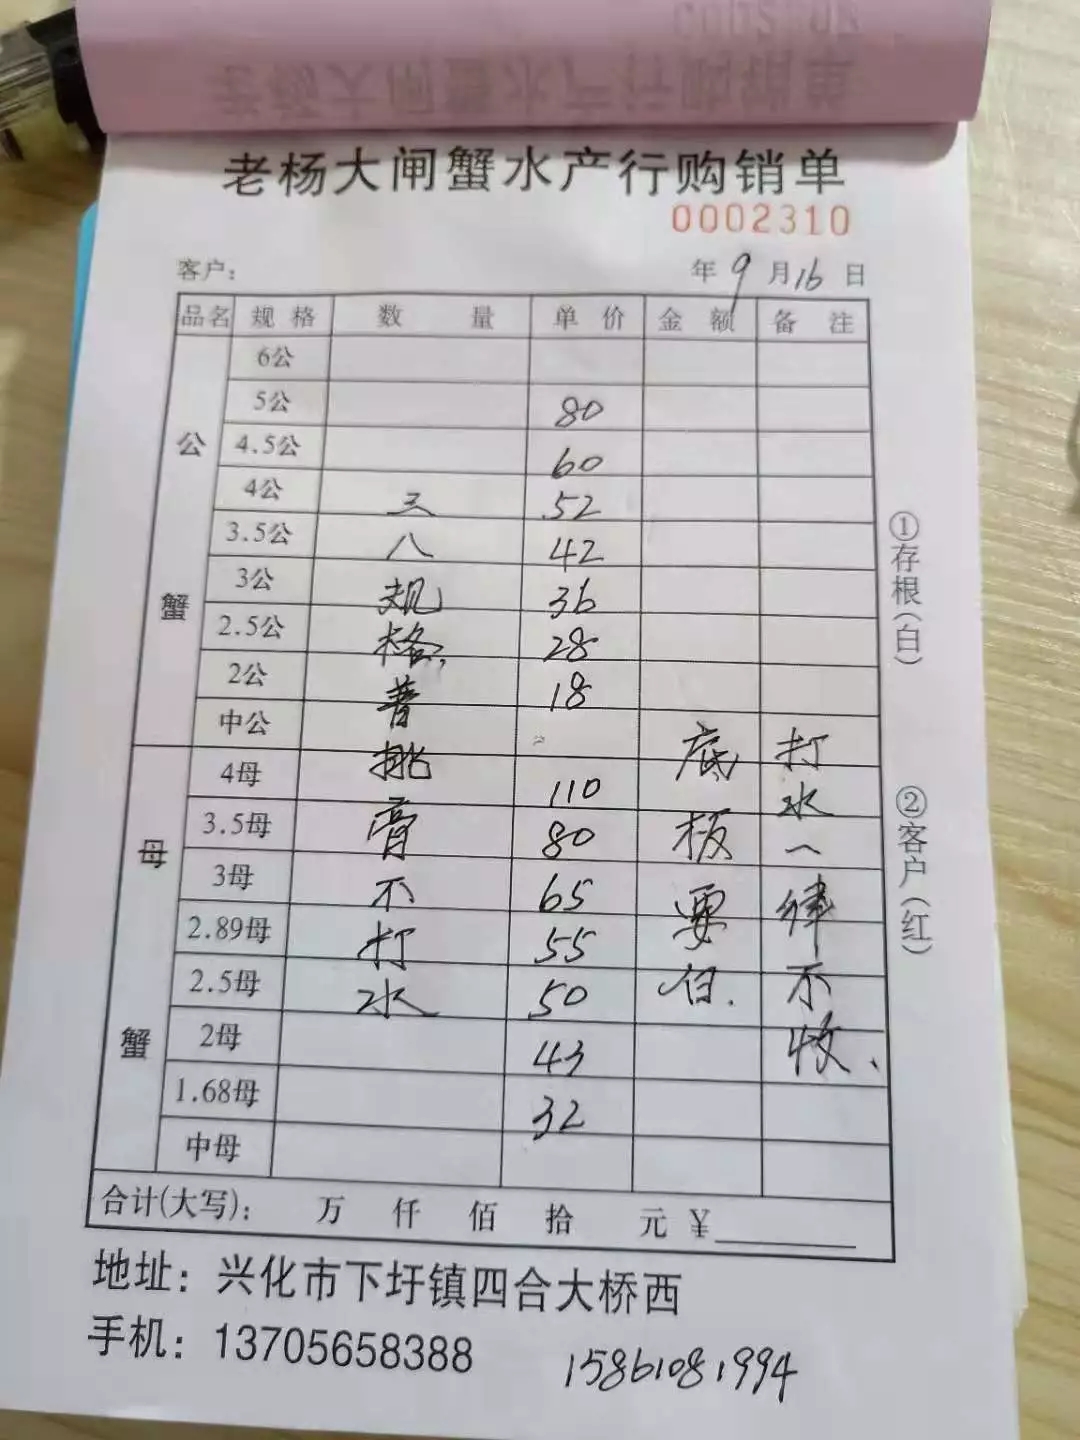 老杨大闸蟹水产行购销单
0002310
客户: 年 9 月 16 日
品名 规格 数量 单价 金额 备注
公蟹
6公
5公 80
4.5公 60
4公 52
3.5公 42
3公 36
2.5公 28
2公 18
中公
母蟹
4母 110
3.5母 80
3母 65
2.89母 55
2.5母 50
2母 43
1.68母 32
中母
三八规格,普挑膏不打水
底板要白.
打水一律不收、
①存根(白)
②客户(红)
合计(大写): 万 仟 佰 拾 元 ¥
地址: 兴化市下圩镇四合大桥西
手机: 13705658388
15861081994